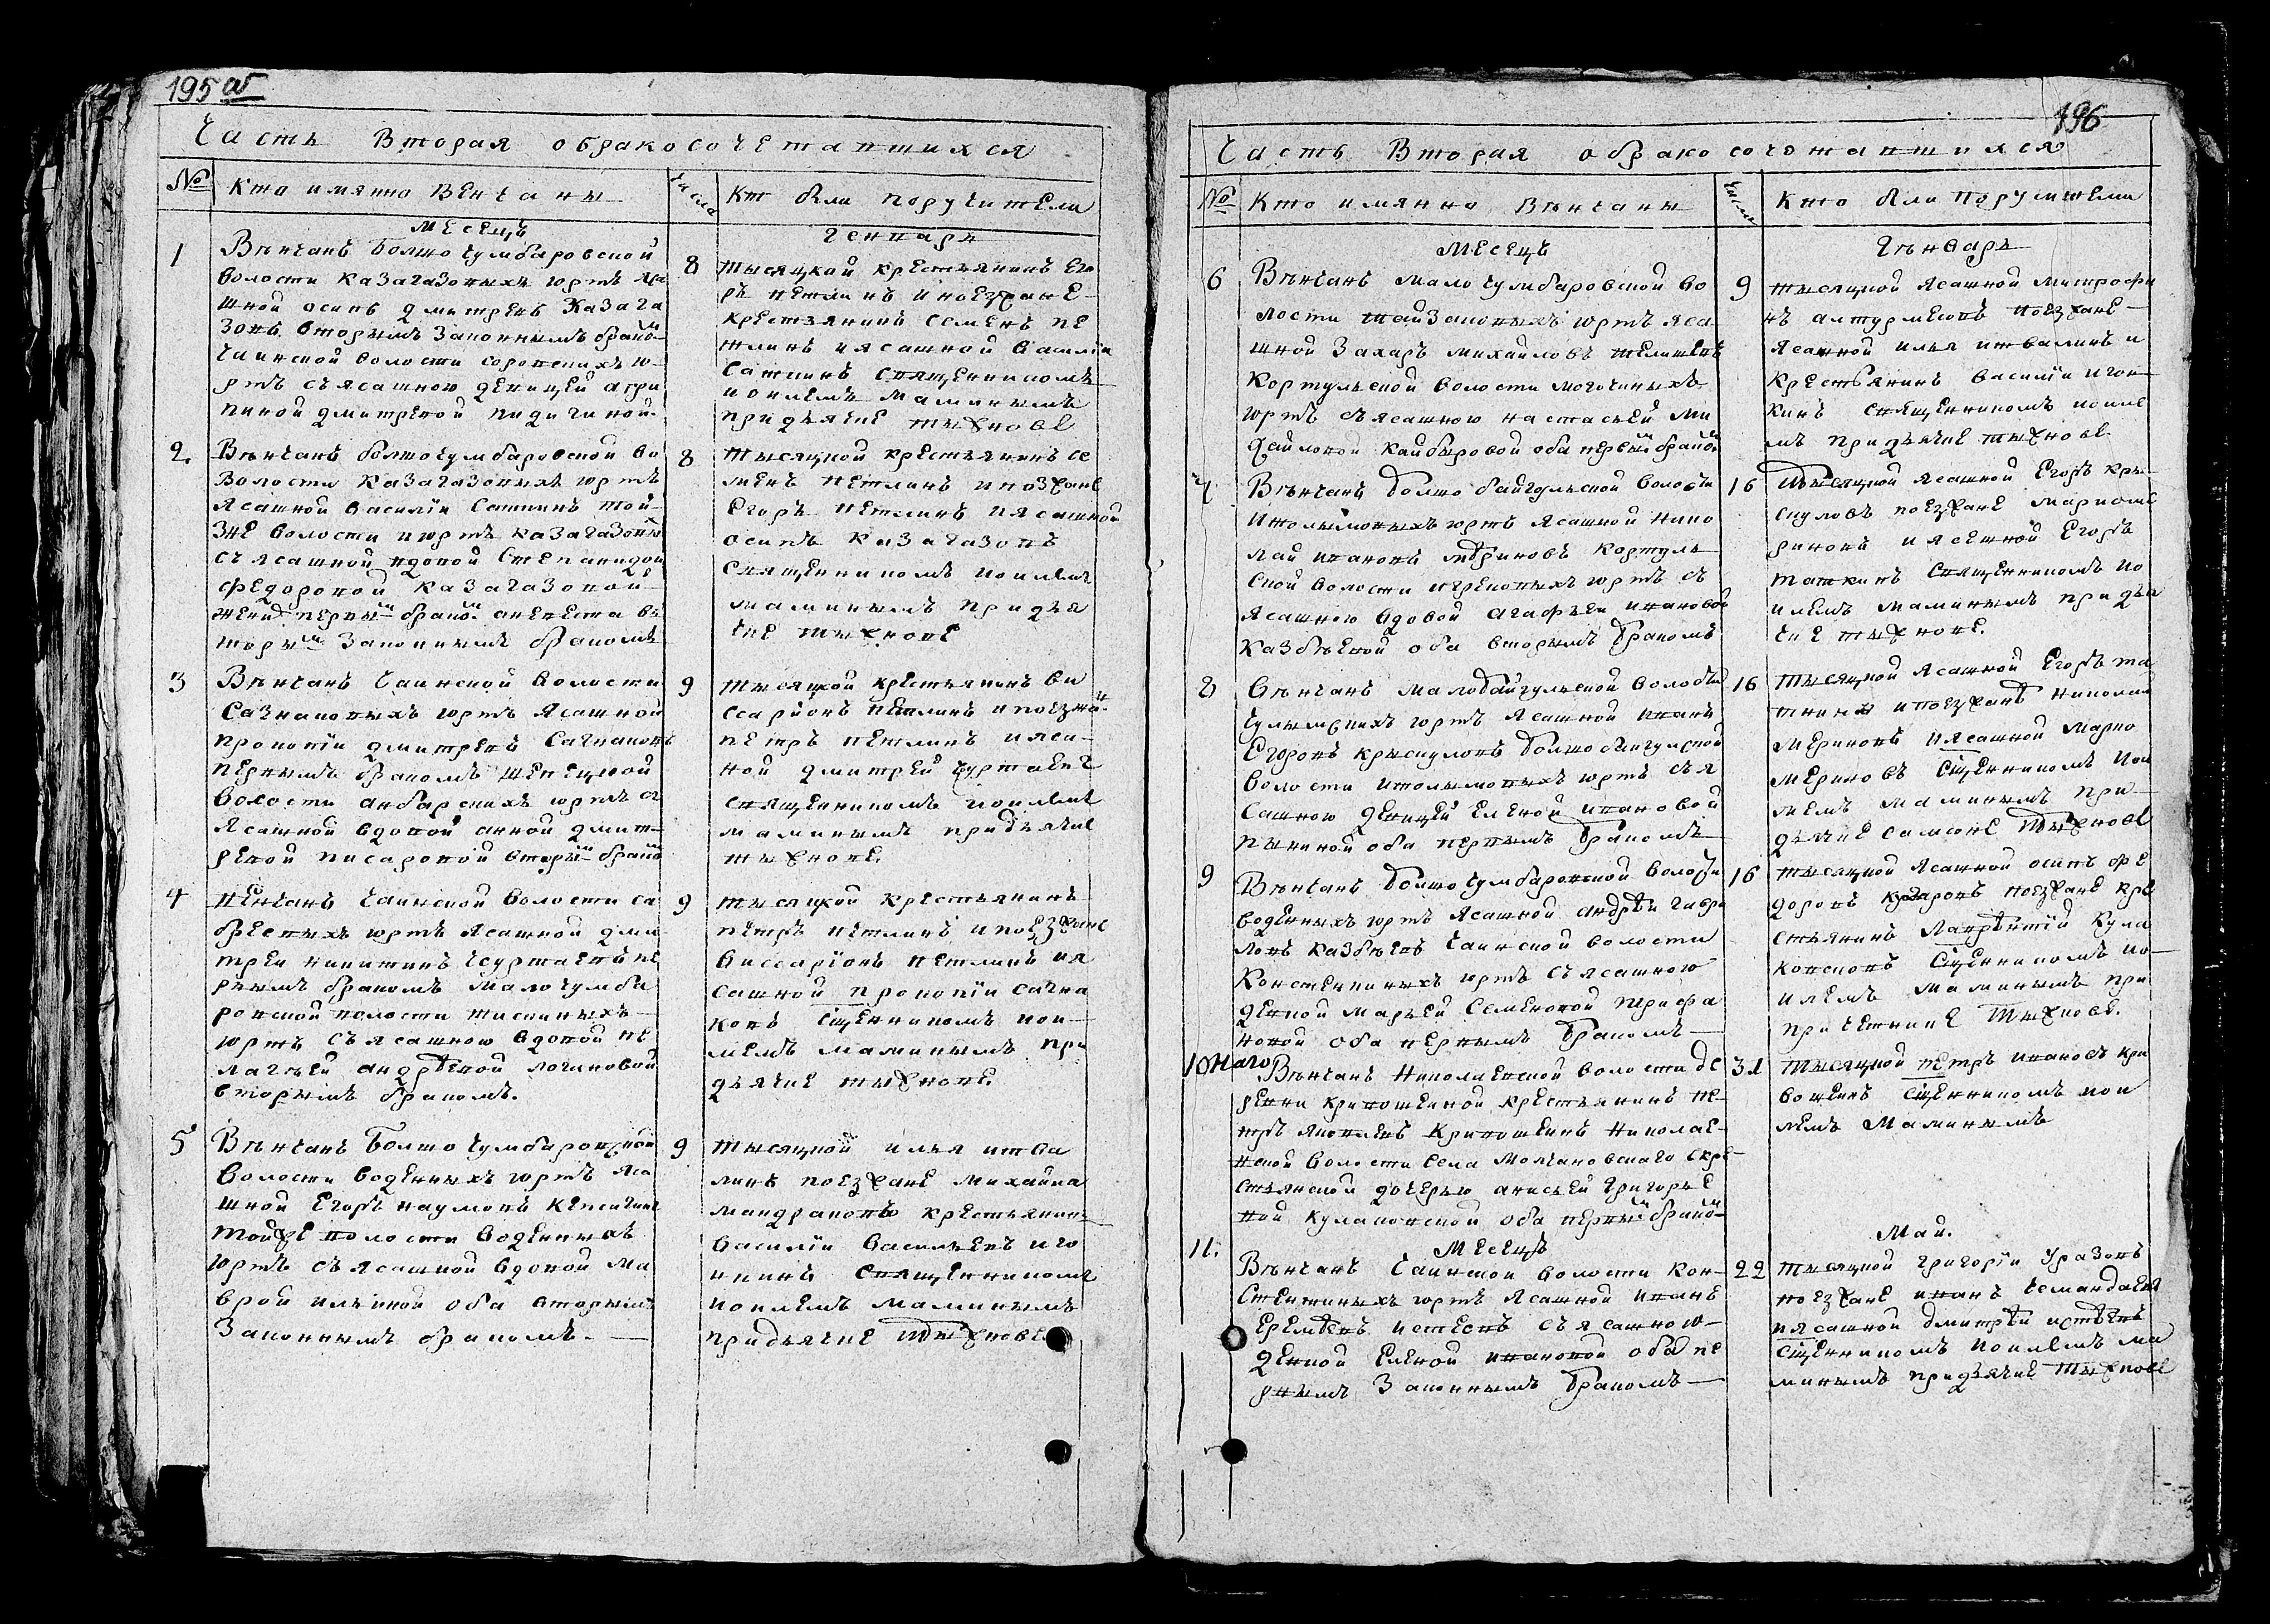 195 об
Часть Вторая обракосочетавшихся
№ Кто имянно Венчаны числа Кто были поручители
месецъ генваря
1 Вѣнчанъ Большо чулмбаровской
волости Казагазовыхъ юртъ яса
шной осипъ дмитревъ Казага
зовъ вторымъ законнымъ бракомъ
Чаинской волости юртъ съ ясашною девицей агри
пиной дмитревой пидигиной.
8 тысяцкой крестьянинъ Его
ръ петлинъ и поезжане
крестьянинъ Семенъ пе
тлинъ и ясашной василiи
Саткинъ священникомъ
иовлемъ маминымъ
придьячке тыжнове
2. Вѣнчанъ болшочулмбаровской во
волости казагазовыхъ юртъ
ясашной василiи Саткинъ той
же волости и юртъ казагазовы
съ ясашной вдовой степанидои
федоровой казагазовой
жених первымъ бракомъ аневеста в
торымъ законнымъ бракомъ
8 тысяцкой крестьянинъ се
менъ петлинъ и поезжане
Егоръ петлинъ и ясашной
осипъ казагазовъ
Священникомъ иовлемъ
маминымъ придья
чке тыжнове
3 Вѣнчанъ Чаинской волости
Сагнаковыхъ юртъ ясашной
прокопiи дмитревъ Сагнаковъ
первымъ бракомъ шепецкой
волости анбарскихъ юртъ съ
ясашной вдовой анной дмит-
ревой писаровой вторымъ бракомъ
9 тысяцкой крестьянинъ ви
ссарiонъ петлинъ и поезжан
петръ петлинъ и яса-
ной дмитрей
священникомъ иовлемъ
маминымъ придьячке
тыжнове.
4 Венчанъ Чаинской волости са
юртъ ясашной дми
трей никитинъ пе
рвымъ бракомъ малочулмба
ровской волости тискиныхъ
юртъ съ ясашною вдовой пе
лагѣей андрѣевой логиновой
вторымъ бракомъ.
9 тысяцкой крестьянинъ
петръ петлинъ и поезжане
виссарiонъ петлинъ ия
сашной прокопiи сагна
ковъ сщенникомъ иов-
лемъ маминымъ при
дьячке тыжнове.
5 Вѣнчанъ Большо чулмбаровской
волости воденныхъ юртъ яса
шной Егоръ наумовъ
тойже волости воденныхъ
юртъ съ ясашной вдовой ма
врой ильиной оба вторымъ
Законнымъ бракомъ.
9 тысяцкой илья итва
линъ поезжане михаила
мандраковъ крестьянинъ
василiи васильевъ иго
нинъ священникомъ
иовлемъ маминымъ
придьячке тыжнове
196
Часть Вторая обракосочетавшихся
№ Кто имянно Вѣнчаны числа Кто были поручители
месецъ Гѣнварь
6 Вѣнчанъ мало чулмбаровской во
лости тайзаковыхъ юртъ яса
шной Захаръ михайловъ
Кортульской волости могочиныхъ
юртъ съ ясашною настасьей ми
хайловой кайбыровой оба первымъ бракомъ
9 тысяцкой ясашной митрофа
нъ поезжане
ясашной илья итвалинъ и
крестьянинъ василiи игон
кинъ священникомъ иовле
мъ придьячке тыжнове.
7 Вѣнчанъ Большо байгульской волости
юртъ ясашной нико
лай ивановъ Кортуль
ской волости игрековыхъ юртъ съ
ясашною вдовой агафьеи ивановой
казбѣевой оба вторымъ бракомъ
16 тысяцкой ясашной Егоръ кры
скуловъ поезжане
и ясешной Егоръ
таткинъ священникомъ ио
илемъ маминымъ придья
чке тыжнове.
8 Вѣнчанъ малобайгульской волости
юртъ ясашной иванъ
Егоровъ крыскуловъ Большо байгулской
волости юртъ съ я
сашною девицей Еленой ивановой
оба первымъ бракомъ
16 тысяцкой ясашной Егоръ та
и поезжанъ николай
мериновъ и ясашной марко
мериновъ сщенникомъ иов
лемъ маминымъ при-
дьячке самсоне тыжнове
9 Вѣнчанъ Большо чулмбаровской волости
воденныхъ юртъ ясашной андрѣи гаври
ловъ казбѣевъ Чаинской волости
юртъ съ ясашною
девкой марьей Семеновой трифа
новой оба первымъ бракомъ
16 тысяцкой ясашной осипъ фе
доровъ поезжане кре
стьянинъ лаврѣнтiй кула
ковсковъ сщенникомъ ио-
илемъ маминымъ при
причетнике тыжнове.
10наго Вѣнчанъ николаевской волости де
ревни кривошеиной крестьянинъ пе-
тръ яковлевъ кривошеинъ николае-
вской волости села молчановскаго скре
стьянской дочерью анисьей григорье
вой кулаковской оба первымъ бракомъ
31 тысяцкой петръ ивановъ кри
вошеинъ сщенникомъ иои
лемъ маминымъ
Месецъ Май.
11. Вѣнчанъ Чаинской волости кон-
юртъ ясашной иванъ
Еремѣевъ истеевъ съ ясашною
девкой Еленой ивановой оба пе
рвымъ Законнымъ бракомъ
22 тысяцкой григорiи уразовъ
поезжане иванъ
и ясашной дмитрѣи истѣевъ
сщенникомъ иовлемъ ма
минымъ придьячке тыжнове